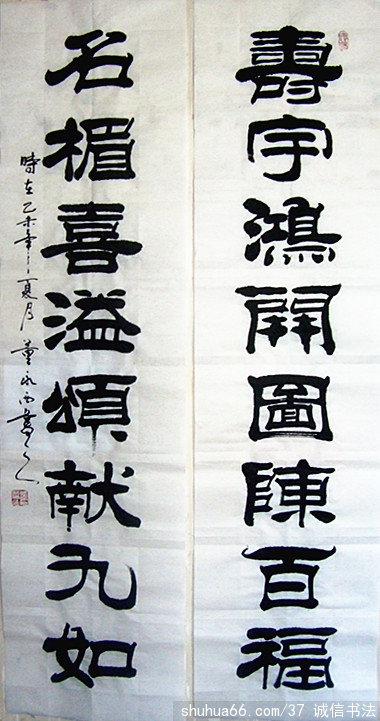 壽宇鴻開圖陳百福
名楣喜溢頌献九如
時在乙未年夏月董
shuhua66.com/37 诚信书法